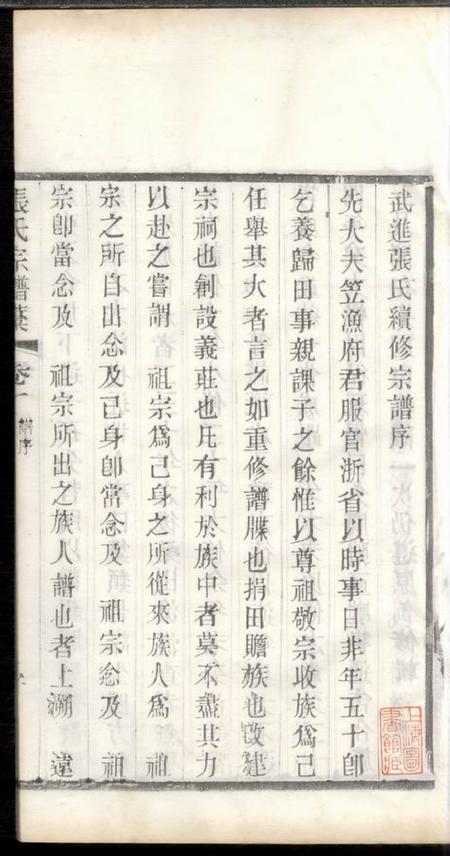 武進張氏續修宗譜序
先大夫笠漁府君服官浙省以時事日非年五十卽
乞養歸田事親課子之餘惟以尊祖敬宗收族爲己
任舉其大者言之如重修譜牒也捐田贍族也改建
宗祠也創設義莊也凡有利於族中者莫不盡其力
以赴之嘗謂　祖宗爲己身之所從來族人爲　祖
宗之所自出念及己身卽當念及　祖宗念及　祖
宗卽當念及　祖宗所出之族人譜也者上溯　遠
張氏宗譜　卷一　譜序
上海圖書館藏